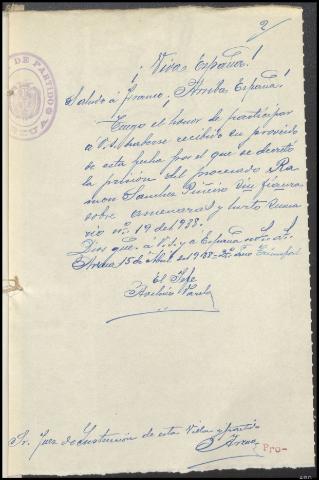 2
DE PARTIDO
¡Viva España!
Saludo á Franco, ¡Arriba España!
Tengo el honor de participar
a V.S. haberse recibido su proveido
de esta fecha por el que se decreta
la prision del procesado Ra-
mon Sanchez Piñeiro sin fianza
sobre amenazas y hurto suma-
rio nº. 19 del 1938.
Dios gue. a V.S. y a España ms. as.
Arzua 15 de Abril de 1938= 2º. Año Triunfal
El Jefe
Varela
Sr. Juez de Instruccion de esta Villa y partido
Arzua
Pro-